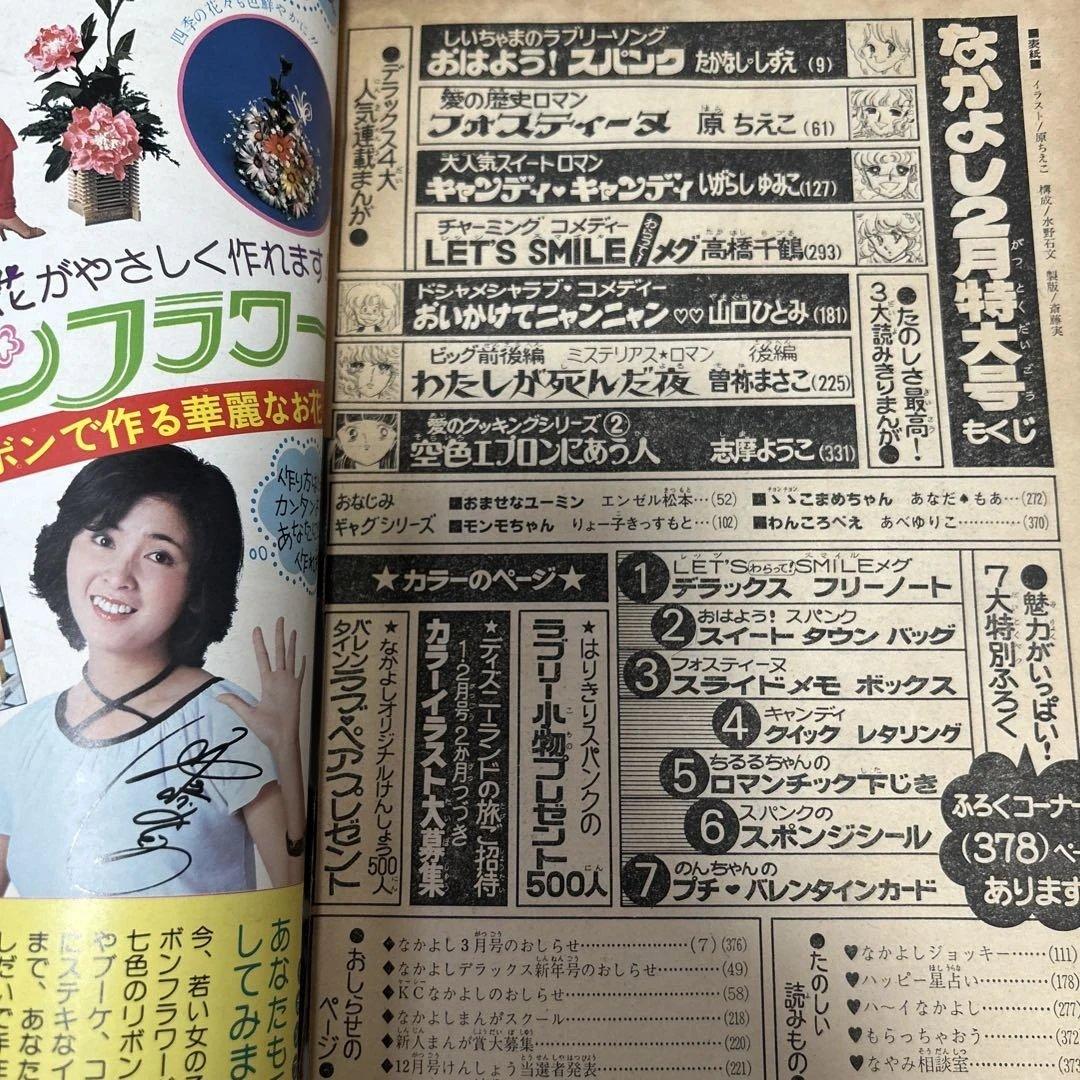 なかよし2月特大号
もくじ
■表紙■ イラスト/原ちえこ 構成/水野石文 製版/斎藤実
●デラックス4大人気連載まんが●
しいちゃまのラブリーソング
おはよう!スパンク たかなし・しずえ(9)
愛の歴史ロマン
フォスティーヌ 原ちえこ(61)
大人気スイートロマン
キャンディ♥キャンディ いがらしゆみこ(127)
チャーミング コメディー
LET'S SMILE わらって! メグ 高橋千鶴(293)
●たのしさ最高!3大読みきりまんが●
ドシャメシャラブ・コメディー
おいかけてニャンニャン♡♡ 山口ひとみ(181)
ビッグ前後編 ミステリアス★ロマン 後編
わたしが死んだ夜 曽祢まさこ(225)
愛のクッキングシリーズ②
空色エプロンにあう人 志摩ようこ(331)
おなじみギャグシリーズ
■おませなユーミン エンゼル松本…(52)
■ゝゝこまめちゃん あなだ♠もあ…(272)
■モンモちゃん りょー子きっすもと…(102)
■わんころべえ あべゆりこ…………(370)
●魅力がいっぱい!7大特別ふろく
1 LET'S わらって! SMILEメグ
デラックス フリーノート
2 おはよう! スパンク
スイート タウン バッグ
3 フォスティーヌ
スライド メモ ボックス
4 キャンディ
クイック レタリング
5 ちるるちゃんの
ロマンチック下じき
6 スパンクの
スポンジシール
7 のんちゃんの
プチ♥バレンタインカード
ふろくコーナー
(378)ペー
あります
★カラーのページ★
★はりきりスパンクの
ラブリー小物プレゼント500人
★ディズニーランドの旅ご招待
12月号2か月つづき
カラーイラスト大募集
★なかよしオリジナルけんしょう
バレンタインラブ♥ペアプレゼント500人
●おしらせのページ
なかよし3月号のおしらせ……………(7)(376)
なかよしデラックス新年号のおしらせ……(49)
KCなかよしのおしらせ……………(58)
なかよしまんがスクール……………(218)
新人まんが賞大募集……………(220)
12月号けんしょう当選者発表……………(221)
●たのしい読みもの
♥なかよしジョッキー……(111)
♥ハッピー星占い……(178)
♥ハ～イなかよし……(277)
♥もらっちゃおう……(372)
♥なやみ相談室……(373
四季の花々も色鮮やかに!!
花がやさしく作れます
ンフラワー
ボンで作る華麗なお花
作り方は
カンタン
あなたに
作れ
あなたも
してみま
今、若い女の子
ボンフラワー、
七色のリボン
やブーケ、コ
にステキなイ
まで、あなた
しだいで手ま